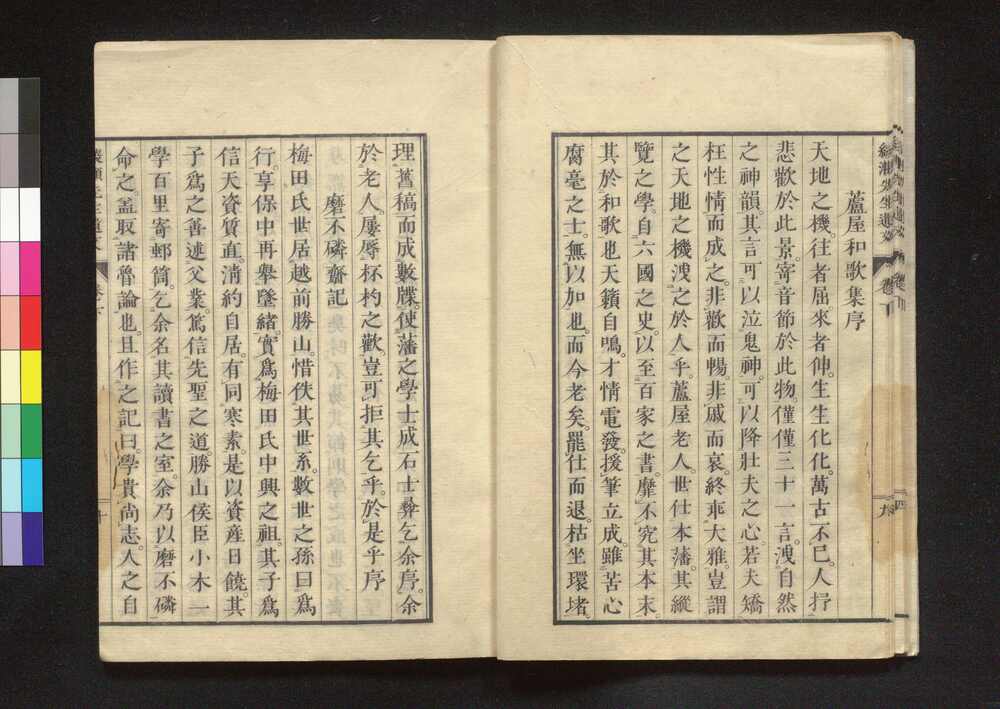 蘆屋和歌集序
天地之機。往者屈來者伸。生生化化。萬古不已。人抒
悲歡於此景。寄音節於此物。僅僅三十一言。洩自然
之神韻。其言可以泣鬼神。可以降壯夫之心。若夫矯
枉性情而成之。非歡而暢。非戚而哀。終乖大雅。豈謂
之天地之機洩之於人乎。蘆屋老人。世仕本藩。其縱
覽之學。自六國之史。以至百家之書。靡不究其本末
其於和歌也。天籟自鳴。才情電發。援筆立成。雖苦心
腐毫之士。無以加也。而今老矣。罷仕而退。枯坐環堵。
理舊稿而成數牒。使藩之學士成石士彝乞余序。余
於老人。屢辱杯杓之歡。豈可拒其乞乎。於是乎序
磨不磷齋記
梅田氏世居越前勝山。惜佚其世系。數世之孫曰爲
行。享保中再擧墜緒。實爲梅田氏中興之祖。其子爲
信天資質直。淸約自居。有同寒素。是以資產日饒。其
子爲之善述父業。篤信先聖之道。勝山侯臣小木一
學百里寄郵筒。乞余名其讀書之室。余乃以磨不磷
命之。盖取諸魯論也。且作之記曰。學貴尚志。人之自